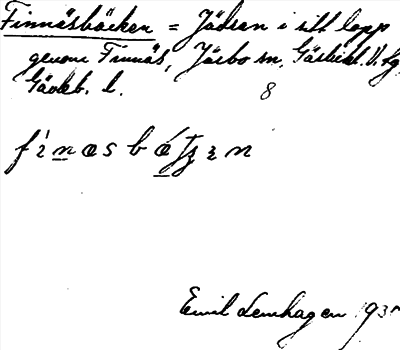 Finnäsbäcken = Jädran i sitt lopp
genom Finnäs, Järbo sn, Gästrikl. V. tg,
Gävleb. l.
8
Emil Lenhagen 193